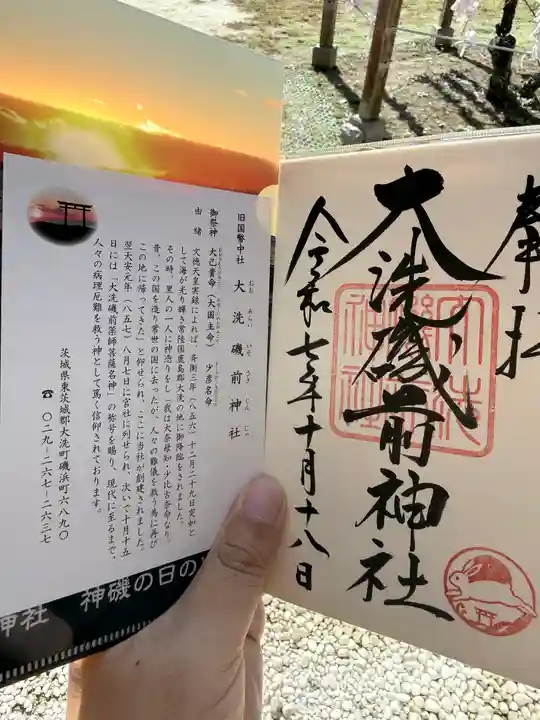 旧国幣中社　大洗磯前神社
おお あらい いそ さき じん じゃ
御祭神　大己貴命（大国主命）　少彦名命
由緒　文徳天皇実録によれば、斉衡三年（八五六）十二月二十九日突如と
して海が光り輝き常陸国鹿島郡大洗の地に御降臨をされました。
その時、里人の一人に神憑りをし「我は大奈母知・少比古奈命なり。
昔、この国を造り常世の国に去ったが、人々の難儀を救う為に再び
この地に帰ってきた」と仰せられ、ここに当社が創建されました。
翌天安元年（八五七）八月七日に官社に列せられ、次いで十月十五
日には「大洗磯前薬師菩薩名神」の称号を賜り、現代に至るまで、
人々の病理厄難を救う神として篤く信仰されております。
茨城県東茨城郡大洗町磯浜町六八九〇
☎ 〇二九−二六七−二六三七
神社　神磯の日の
奉拝
大洗磯前神社
令和七年十月十八日